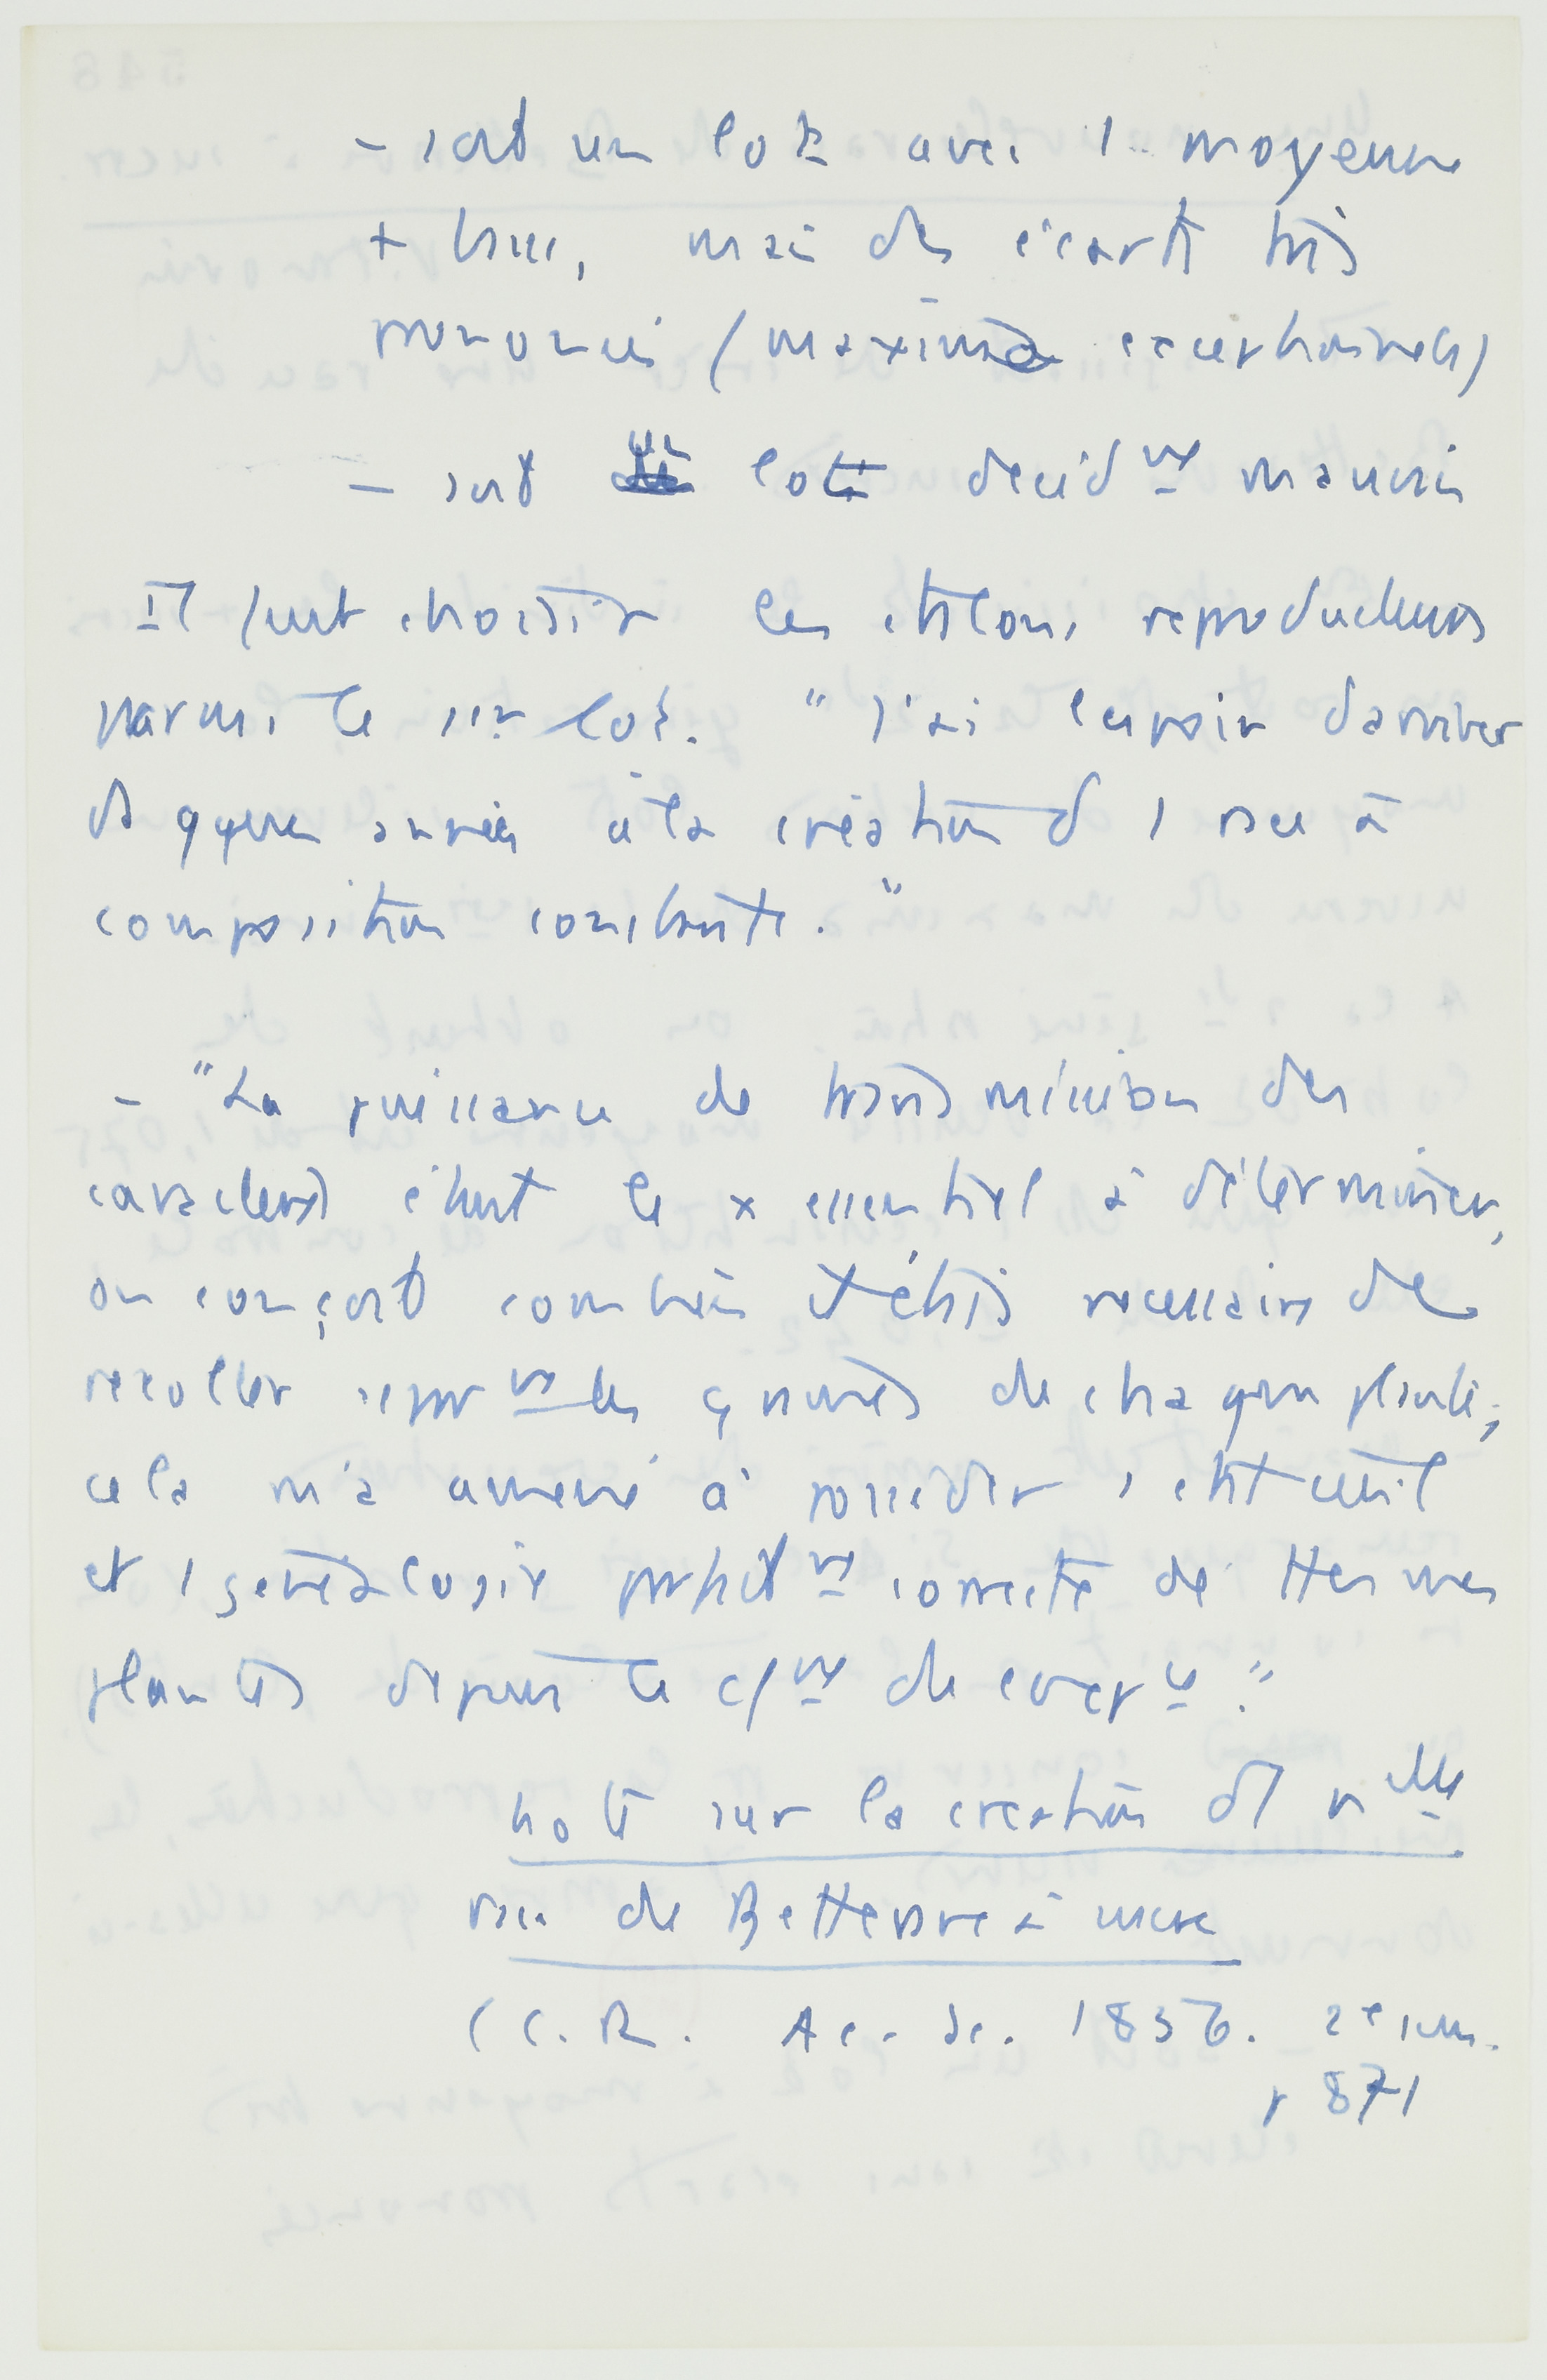 - soit un lot avec 1 moyenne
+ basse, mais des écarts très
prononcés (maxima exceptionnels)
- soit lots décidᵐᵗ mauvais
Il faut choisir les étalons reproducteurs
parmi le 1er lot. "J'ai l'espoir d'arriver
ds qques années à la création d 1 race à
composition constante."
- "La puissance de transmission des
caractères étant le x essentiel à déterminer,
on conçoit combien il était nécessaire de
récolter séparᵐᵗ les graines de chaque plante;
cela m'a amené à posséder 1 état civil
et 1 généalogie parfaitᵐᵗ correcte de ttes mes
plantes depuis le cᵐᵗ de
note sur la création d'1 nˡˡᵉ
race de Betterave à sucre
(C.R. Ac. Sc. 1856. 2e sem.
p 871